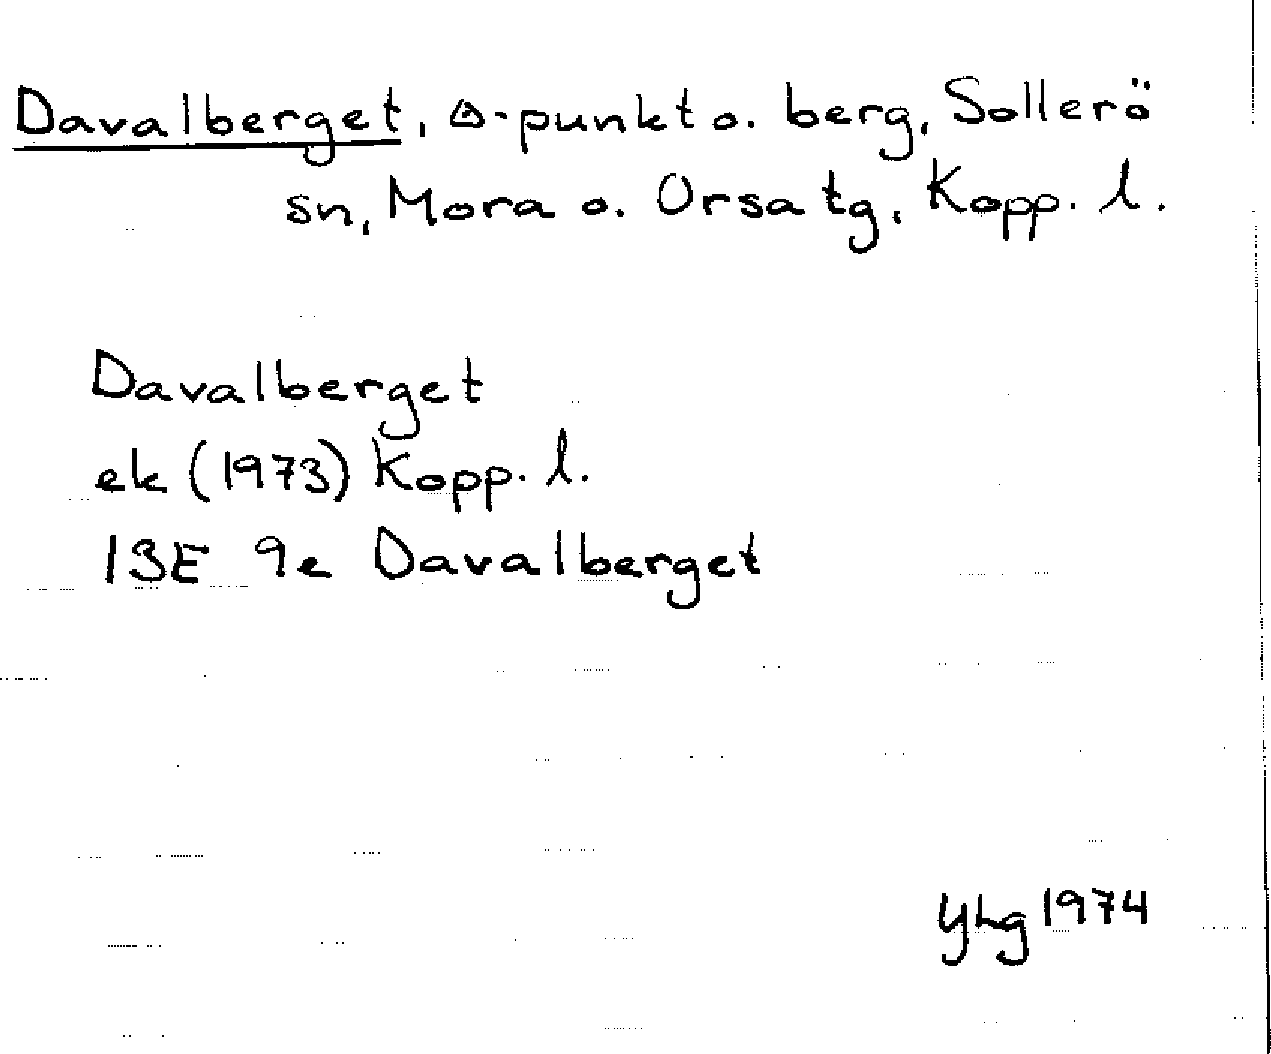 Davalberget, △-punkt o. berg, Sollerö
sn, Mora o. Orsa tg, Kopp. l.
Davalberget
ek (1973) Kopp. l.
13E 9e Davalberget
YHg 1974